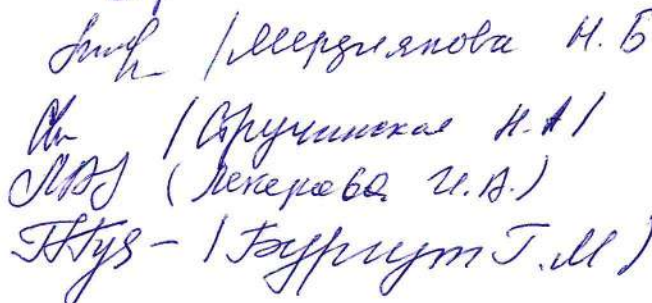 / Мерзлякова Н. Б
/ Стручинская Н.А /
(Лекерова И.А.)
/ Бургут Г.М)